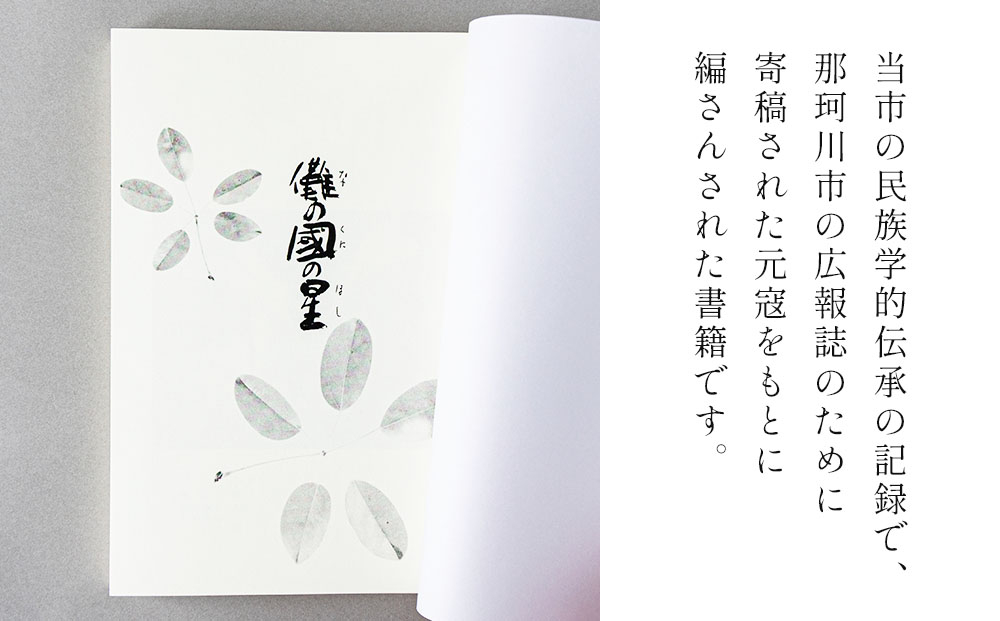 儺の國の星
な
くに
ほし
当市の民族学的伝承の記録で、
那珂川市の広報誌のために
寄稿された元寇をもとに
編さんされた書籍です。